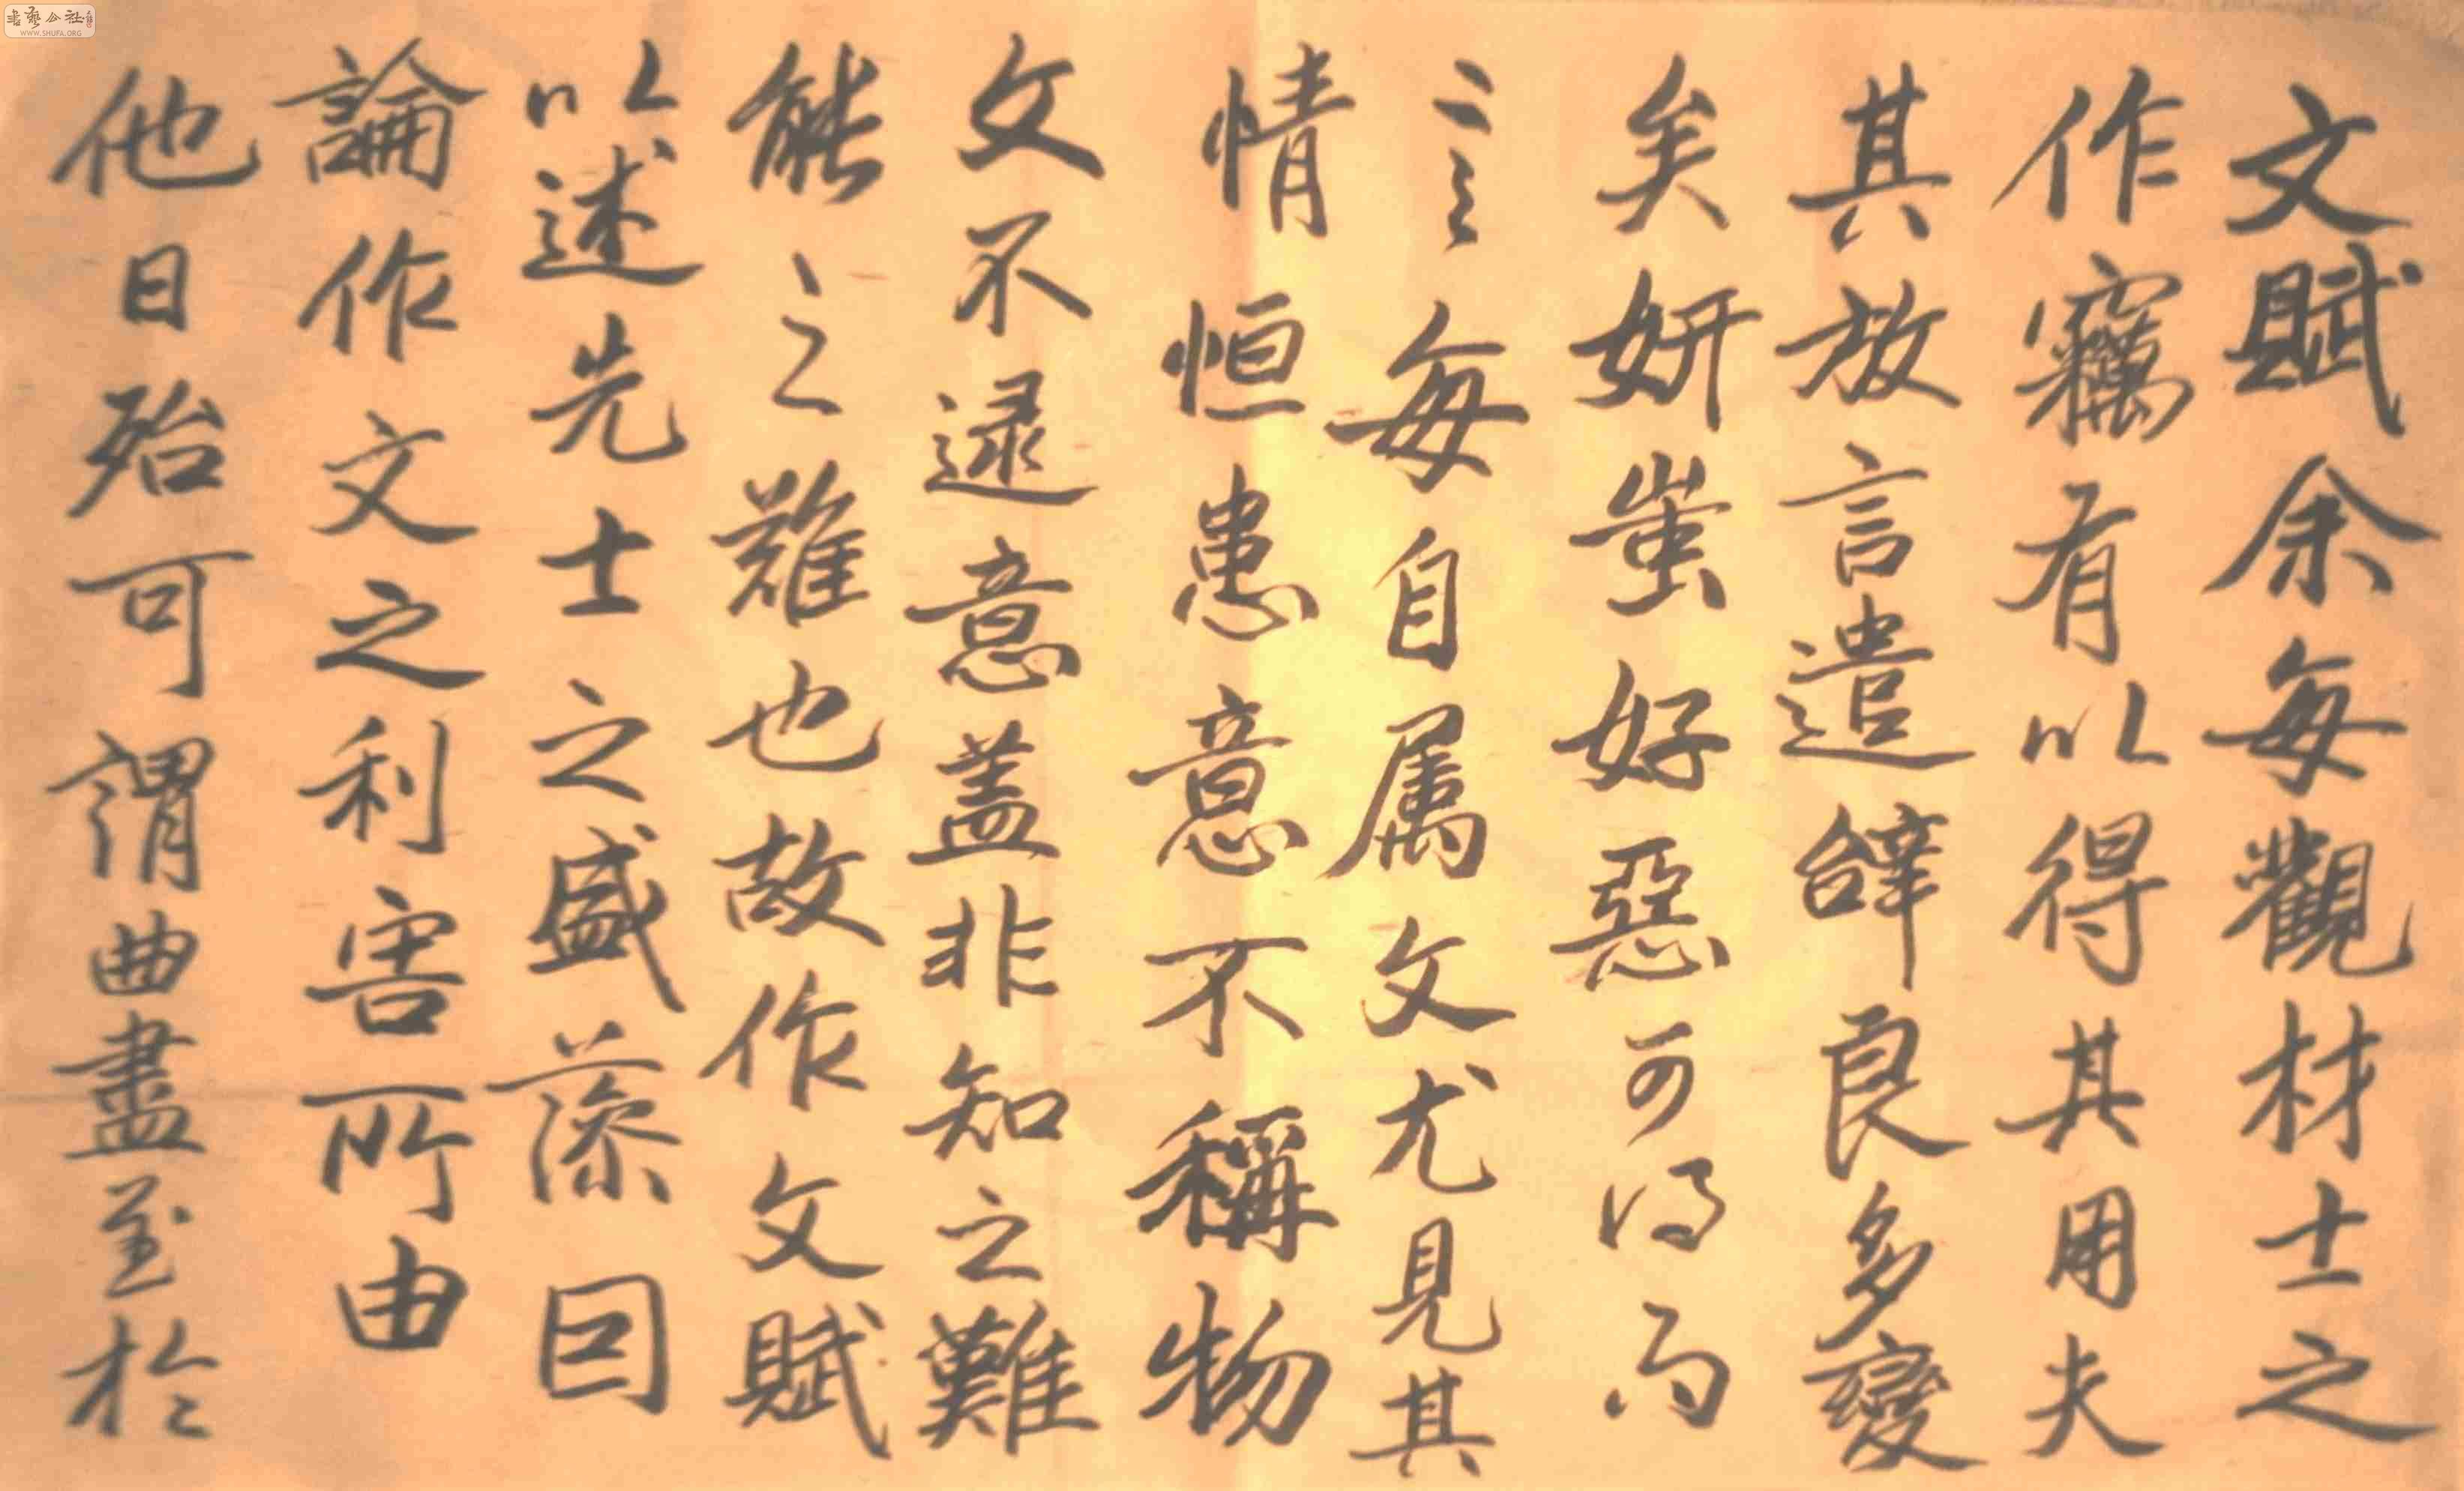 文賦余每觀材士之
作竊有以得其用夫
其放言遣辭良多變
矣妍蚩好惡可得而
言每自属文尤見其
情恒患意不稱物
文不逮意盖非知之難
能之難也故作文賦
以述先士之盛藻因
論作文之利害所由
他日殆可謂曲盡至於
書藝公社
WWW.SHUFA.ORG